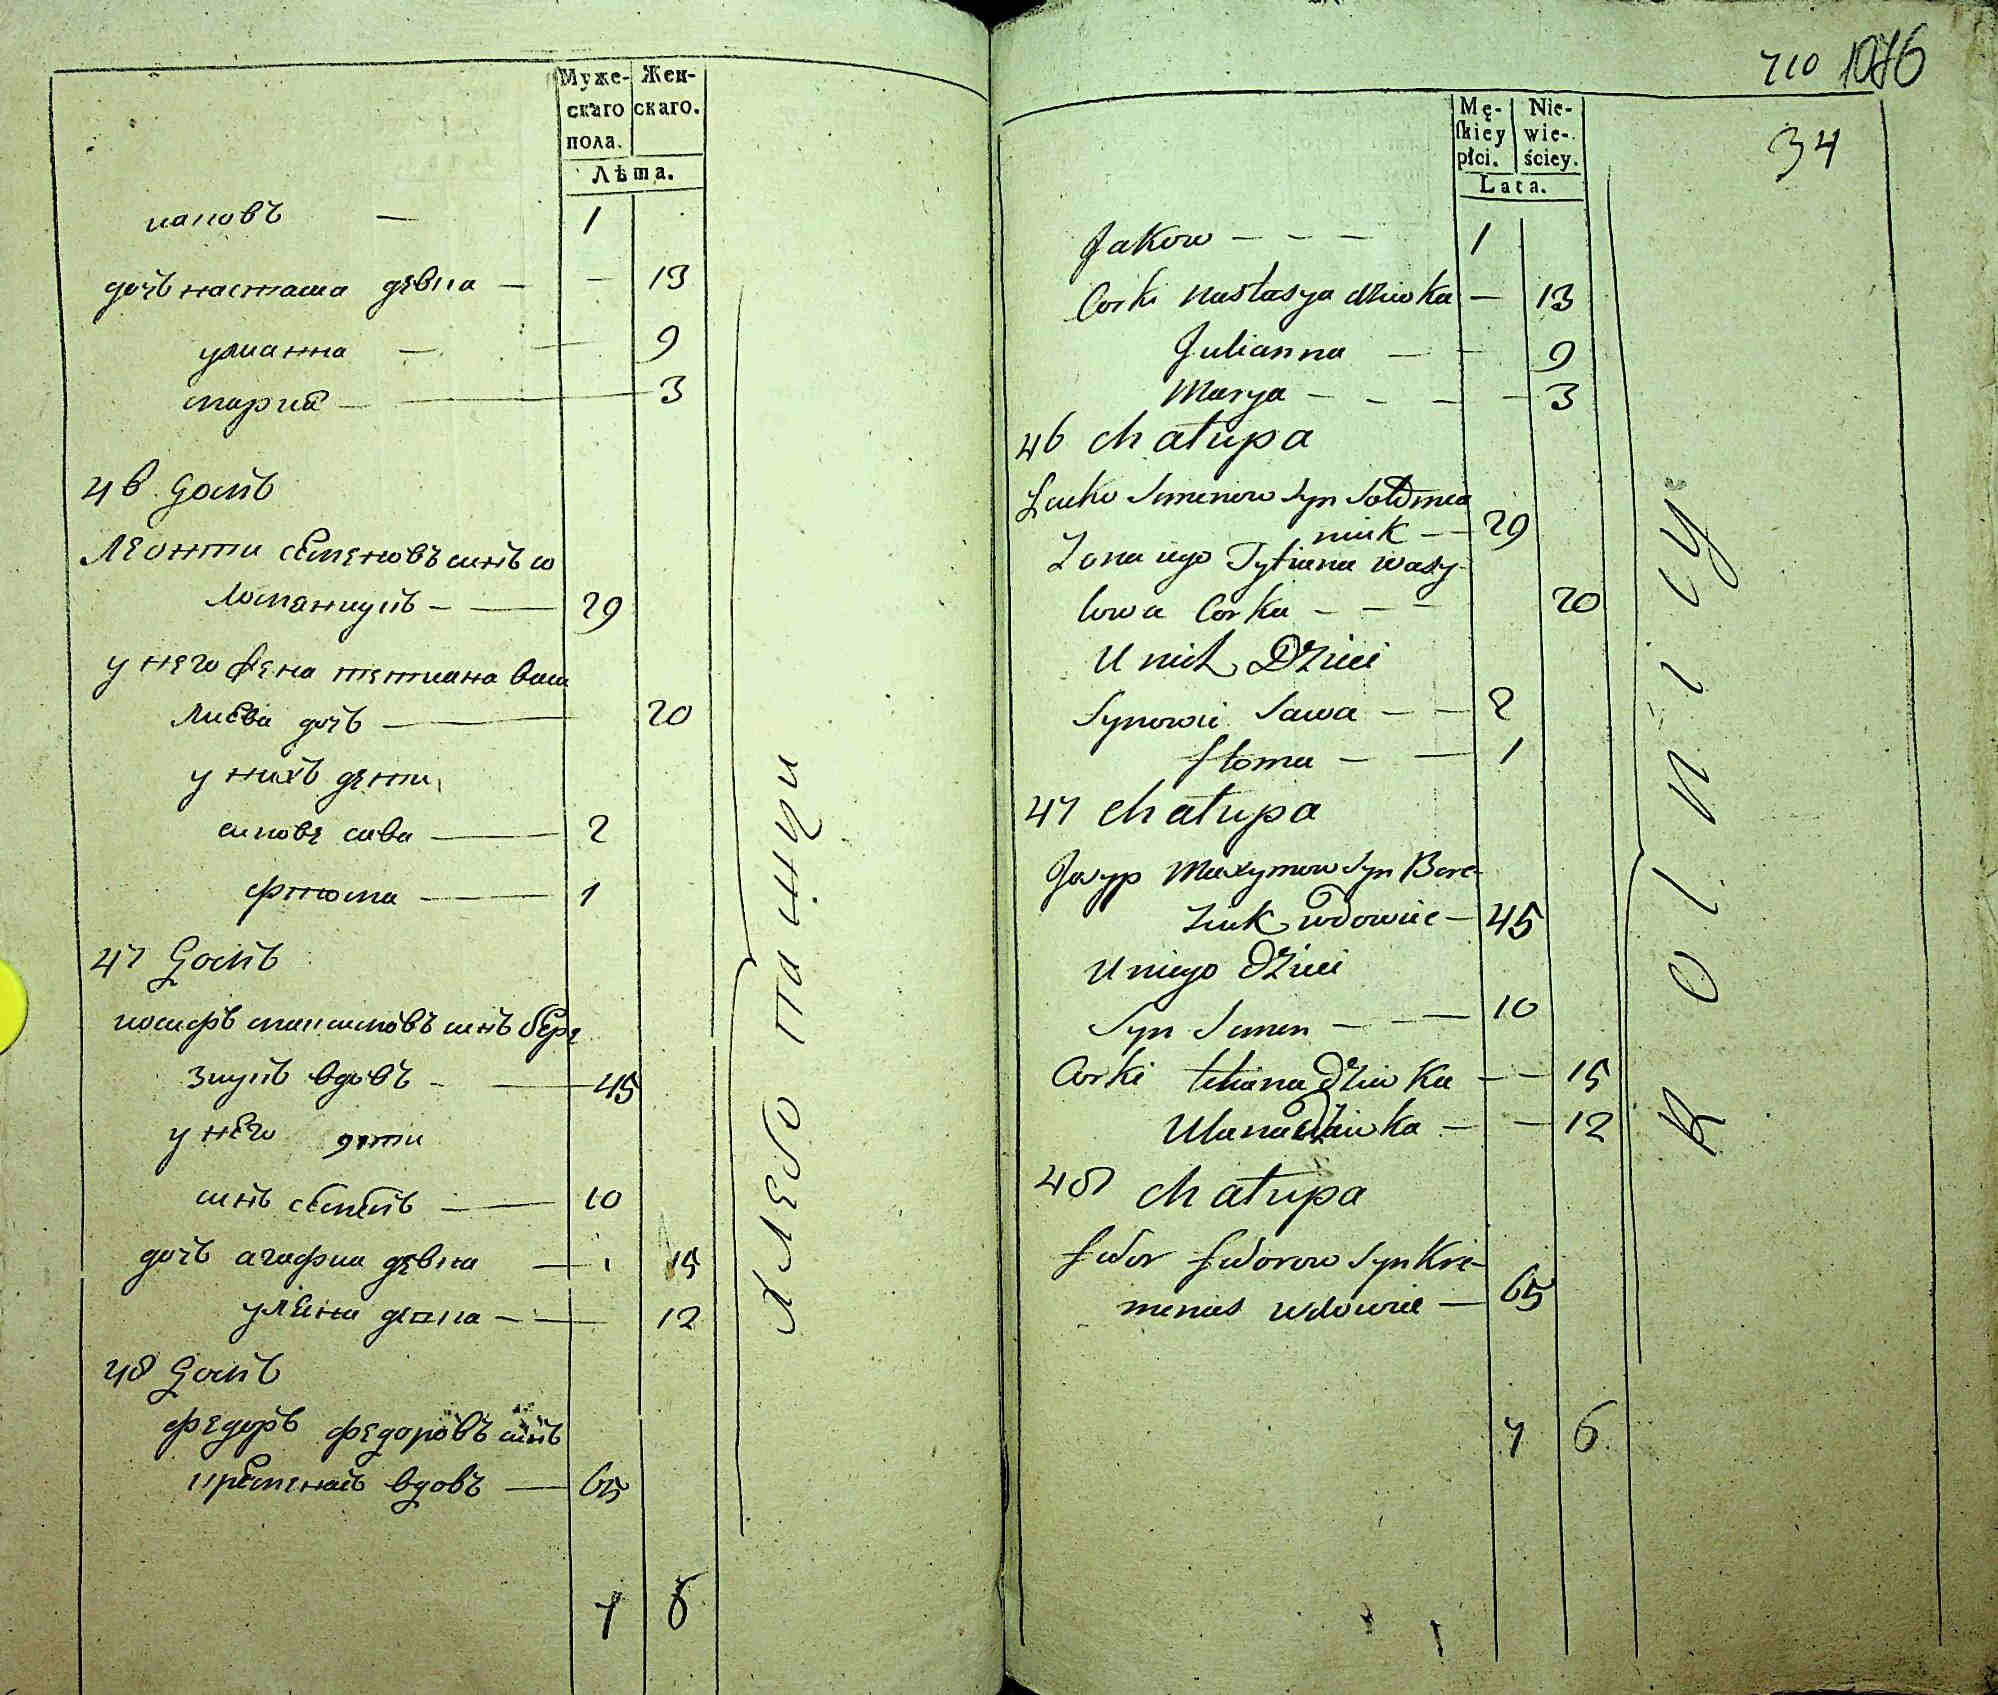 Муже- Жен-
скаго скаго.
пола.
Лѣта.
иаковъ — 1
дочъ настасиа девка — — 13
улианна — — 9
мариа — — 3
46 домъ
леонти семеновъ синъ со
ломеницкъ — — 29
у него жена тетиана васи
лиева дочъ — 20
у нихъ дети
синове сава — 2
фтома — 1
47 домъ
иосифъ максимовъ синъ бере
зицкъ вдовъ — — 45
у него дети
синъ семенъ — 10
дочъ агафиа девка — 15
улиана девка — — 12
48 домъ
федоръ федоровъ синъ
кременасъ вдовъ — 65
7 6
хлебопашци
710 1076
34
Mę- Nie-
ſkiey wie-
płci. ściey.
Lata.
Jakow — — — 1
Corki Nastasya dziwka — 13
Julianna — — 9
Marya — — — — 3
46 chałupa
Lewko Semenow Syn Sołomea
niuk — — 29
Zona iego Tytiana wasy-
lowa Corka — — — 20
U nich Dzieci
Synowie Sawa — — 2
ftoma — — 1
47 chałupa
Josyp Maxymow Syn Bere-
ziuk wdowiec — 45
U niego dzieci
Syn Semen — — 10
Corki tehana dziwka — — 15
Ulana dziwka — — 12
48 chałupa
fedor fedorow Syn Kre-
menas wdowiec — 65
7 6
Rolnicy